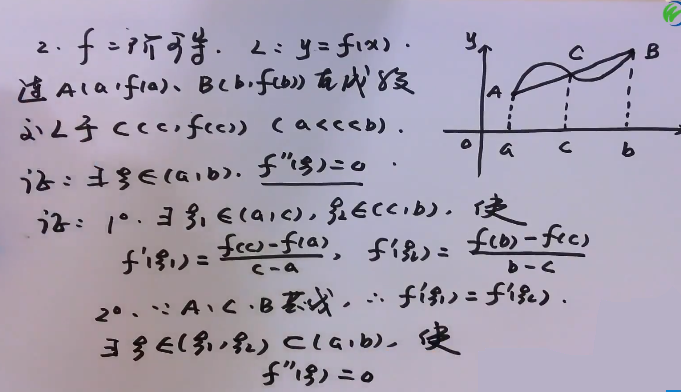 2. f 二阶可导. L: y=f(x).
过A(a,f(a))、B(b,f(b))直线段
交L于C(c,f(c)) (a<c<b).
证: ∃ξ∈(a,b). f''(ξ)=0.
证: 1°. ∃ξ₁∈(a,c), ξ₂∈(c,b), 使
f'(ξ₁)=\frac{f(c)-f(a)}{c-a}, f'(ξ₂)=\frac{f(b)-f(c)}{b-c}
2°. ∵A、C、B共线, ∴f'(ξ₁)=f'(ξ₂).
∃ξ∈(ξ₁,ξ₂)⊂(a,b), 使
f''(ξ)=0
y
A
C
B
0 a c b